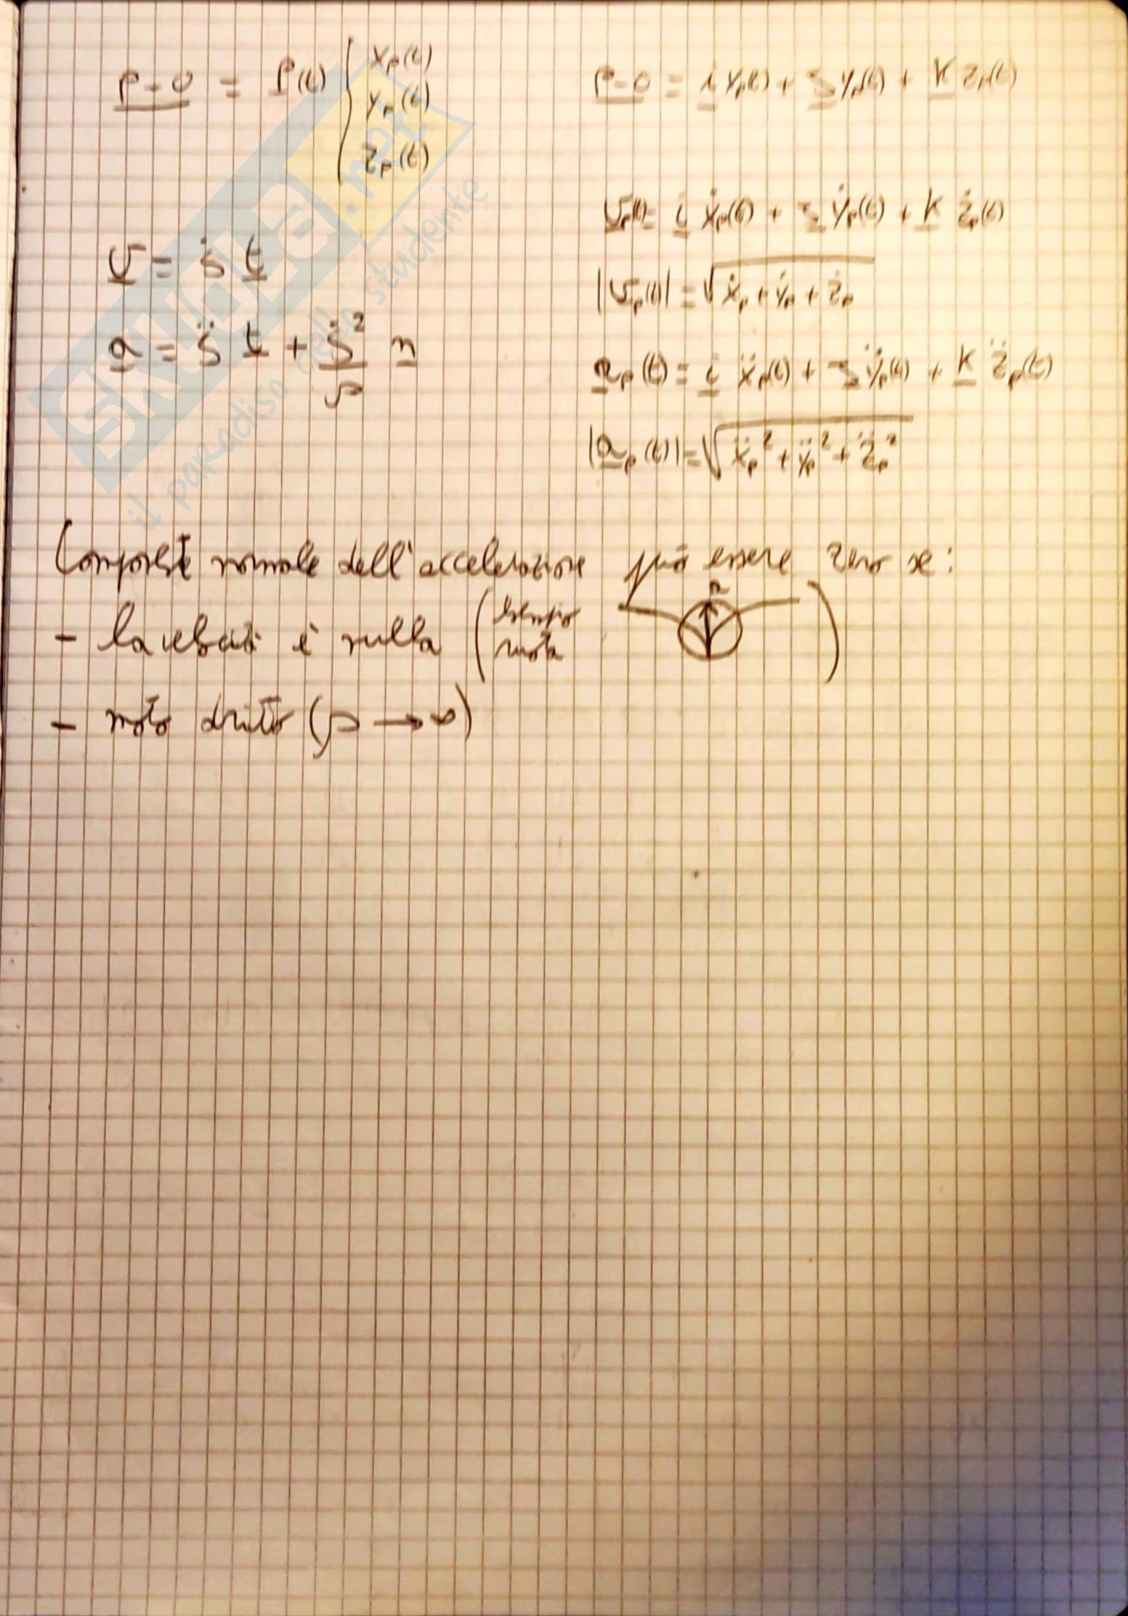 P-O = P(t) { xₚ(t)
yₚ(t)
zₚ(t)
v = ṡ t
a = s̈ t + ṡ²/ρ n
P-O = i xₚ(t) + j yₚ(t) + k zₚ(t)
vₚ(t) = i ẋₚ(t) + j ẏₚ(t) + k żₚ(t)
|vₚ(t)| = √ẋₚ + ẏₚ + żₚ
aₚ(t) = i ẍₚ(t) + j ÿₚ(t) + k z̈ₚ(t)
|aₚ(t)| = √ẍₚ² + ÿₚ² + z̈ₚ²
Componente normale dell'accelerazione può essere zero se:
- la velocità è nulla (esempio
ruota n )
- moto dritto (ρ → ∞)
SKUOLA.net
il paradiso dello studente